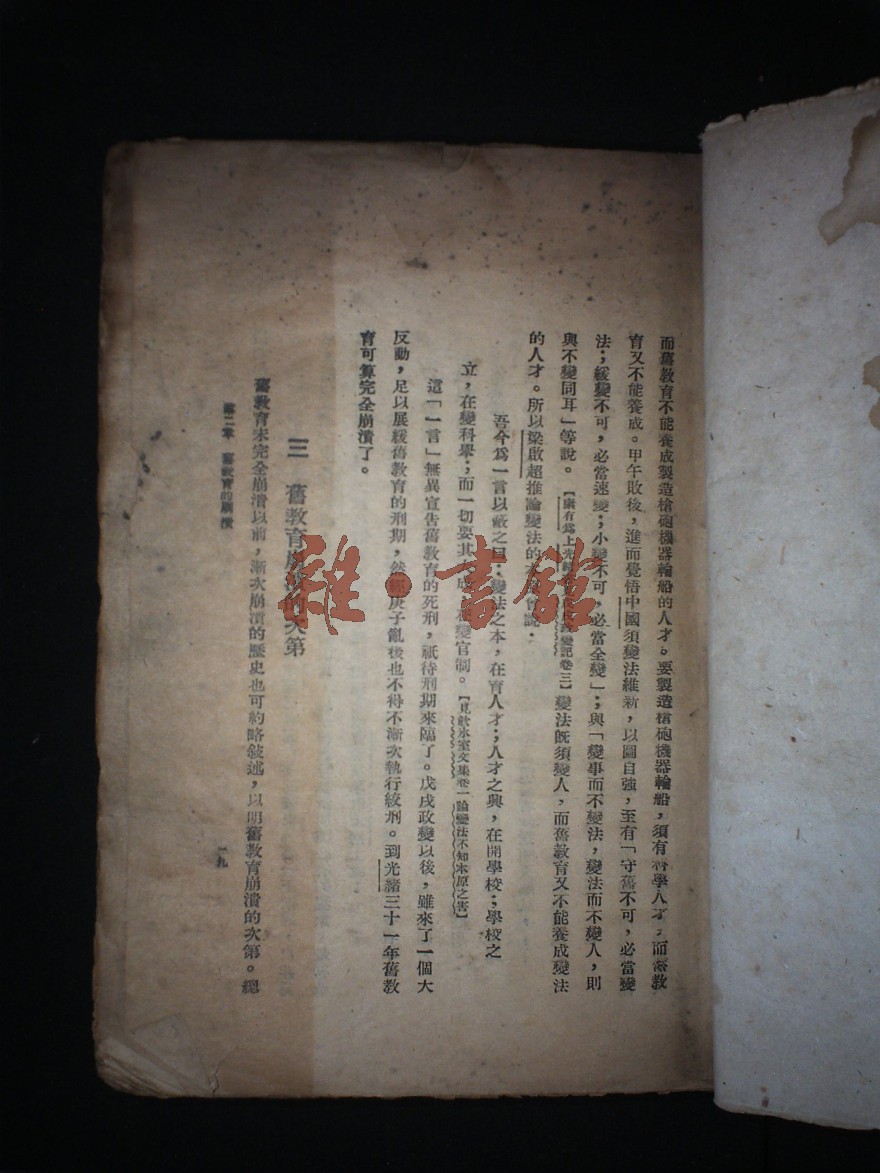 而舊教育不能養成製造槍砲機器輪船的人才。要製造槍砲機器輪船，須有科學人才，而舊教
育又不能養成。甲午敗後，進而覺悟中國須變法維新，以圖自強，至有「守舊不可，必當變
法；緩變不可，必當速變；小變不可，必當全變」；與「變事而不變法，變法而不變人，則
與不變同耳」等說。【康有爲上光緒 變記卷三】變法旣須變人，而舊教育又不能養成變法
的人才。所以梁啟超推論變法的本 說：
吾今爲一言以蔽之曰：變法之本，在育人才；人才之興，在開學校；學校之
立，在變科舉；而一切要其大成，在變官制。【見飲冰室文集卷一論變法不知本原之害】
這「一言」無異宣告舊教育的死刑，祇待刑期來臨了。戊戌政變以後，雖來了一個大
反動，足以展緩舊教育的刑期，然經庚子亂後也不得不漸次執行絞刑。到光緒三十一年舊教
育可算完全崩潰了。
三 舊教育崩潰的次第
舊教育未完全崩潰以前，漸次崩潰的歷史也可約略敍述，以明舊教育崩潰的次第。總
第二章 舊教育的崩潰
一九
雜·書館